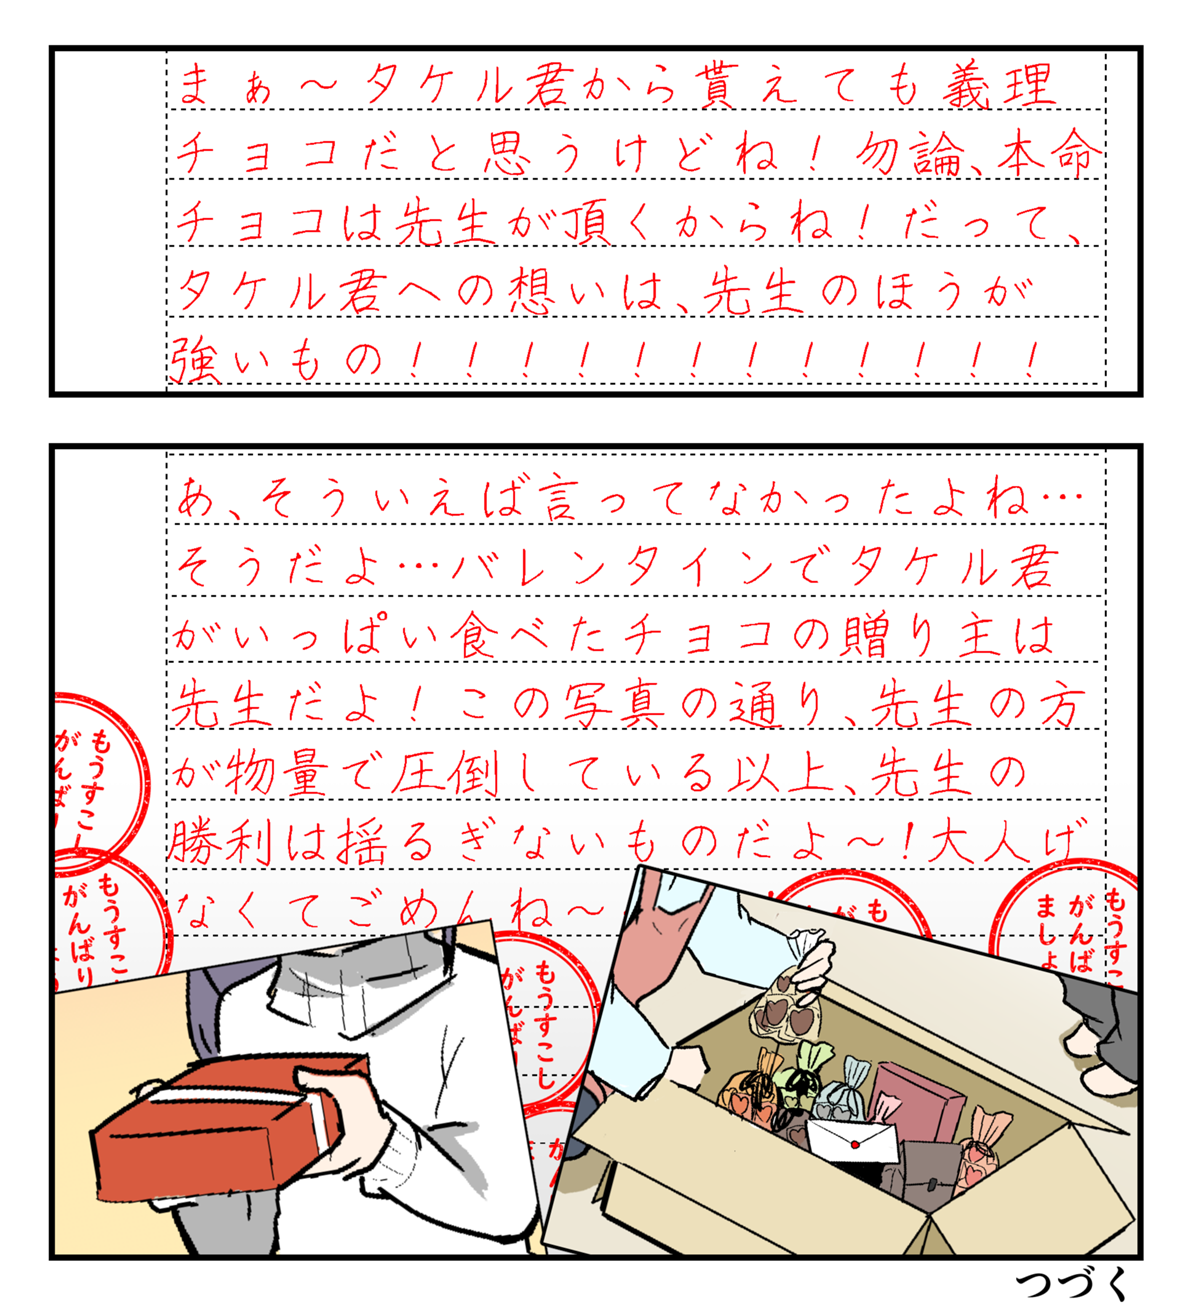 まぁ～タケル君から貰えても義理
チョコだと思うけどね！勿論、本命
チョコは先生が頂くからね！だって、
タケル君への想いは、先生のほうが
強いもの！！！！！！！！！！！！
あ、そういえば言ってなかったよね…
そうだよ…バレンタインでタケル君
がいっぱい食べたチョコの贈り主は
先生だよ！この写真の通り、先生の方
が物量で圧倒している以上、先生の
勝利は揺るぎないものだよ～！大人げ
なくてごめんね～
もうすこし
がんばり
もうすこ
がんばり
もうすこし
がんばり
も
が
もうすこ
がんば
ましょ
が
つづく